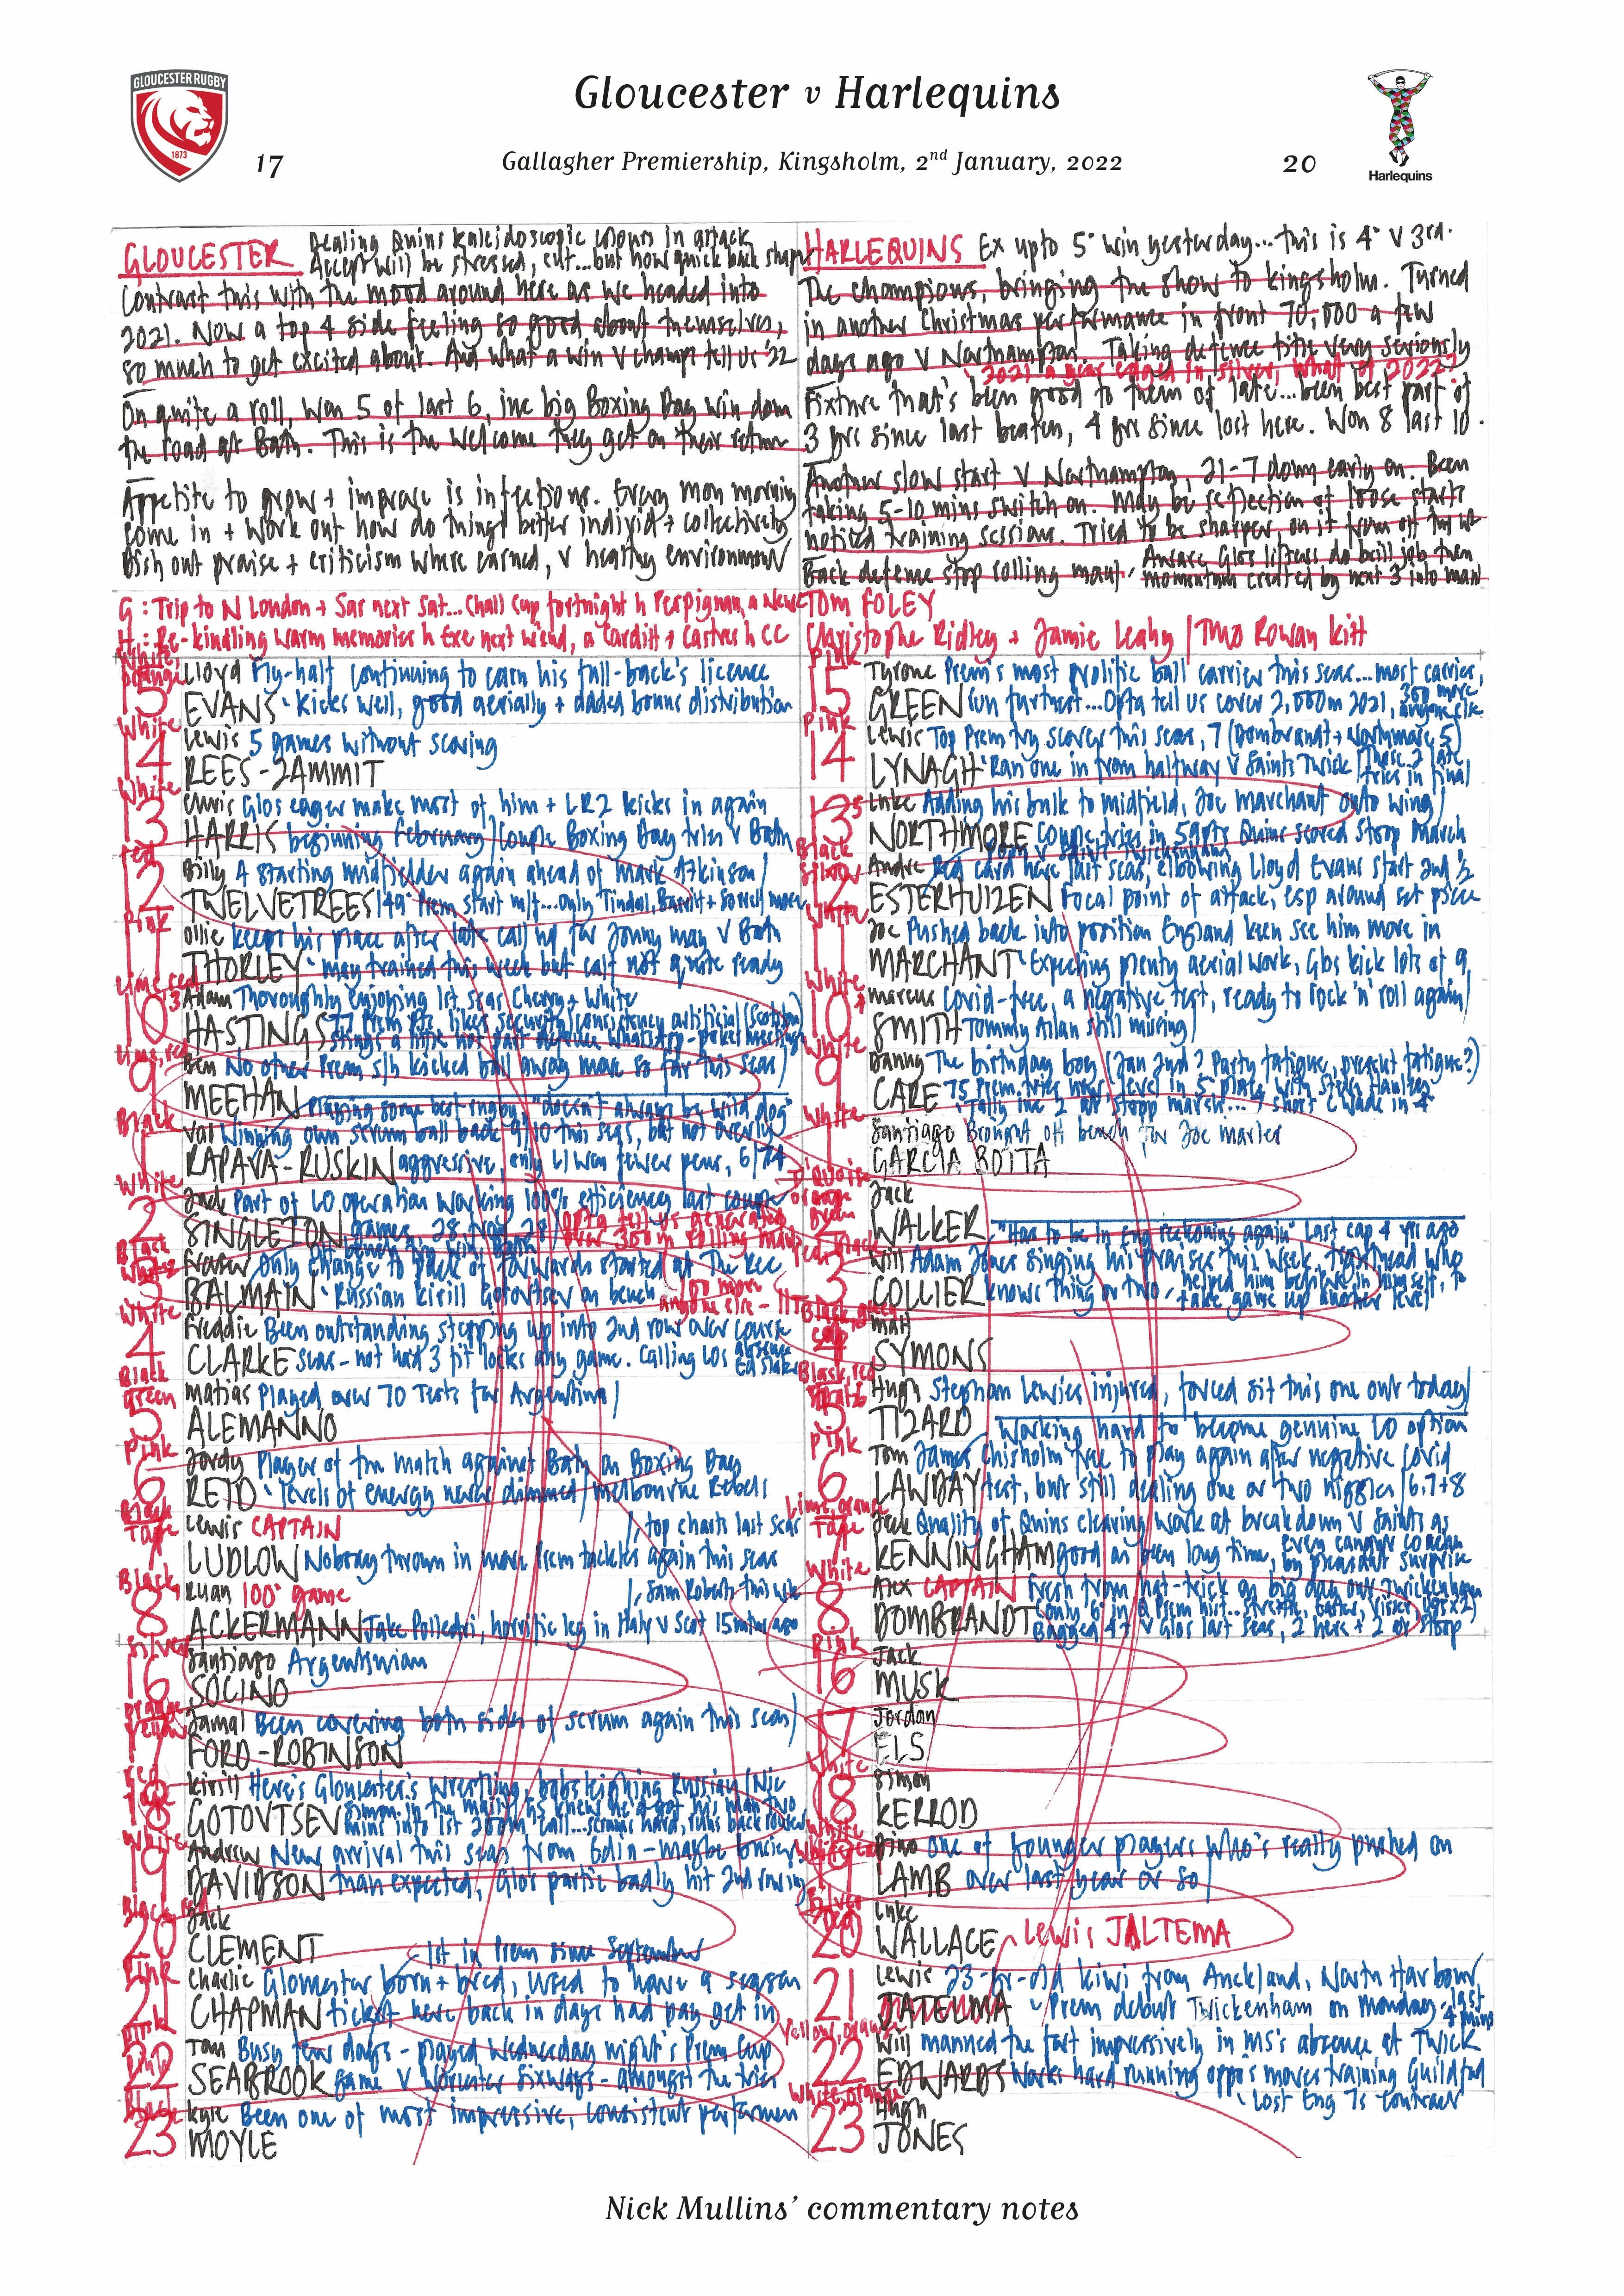 GLOUCESTER RUGBY
1873
Gloucester v Harlequins
17
Gallagher Premiership, Kingsholm, 2nd January, 2022
20
Harlequins
GLOUCESTER Dealing Quins kaleidoscopic colours in attack
Accept will be stressed, cut...but how quick back shape
Contrast this with the mood around here as we headed into
2021. Now a top 4 side feeling so good about themselves,
so much to get excited about. And what a win v champs tell us '22
On quite a roll, won 5 of last 6, inc big Boxing Day win down
the road at Bath. This is the welcome they get on their return
Appetite to grow + improve is infectious. Every mon morning
come in + work out how do things better individ + collectively
Dish out praise + criticism where earned, v healthy environment
HARLEQUINS Ex upto 5° win yesterday...this is 4° v 3rd.
The champions, bringing the show to Kingsholm. Turned
in another Christmas performance in front 70,000 a few
days ago v Northampton. Taking defence title very seriously
2021 a year edged in silver, what of 2022?
Fixture that's been good to them of late...been best part of
3 yrs since last beaten, 4 yrs since lost here. Won 8 last 10.
Another slow start v Northampton, 21-7 down early on. Been
taking 5-10 mins switch on. May be reflection of loose starts
noticed training sessions. Tried to be sharper on it from off
Aware Glos lifters do brill job then
Back defence stop rolling maul, momentum created by next 3 into maul
G: Trip to N London + Sar next Sat...Chall Cup fortnight h Perpignan, a Newc
H: Re-kindling warm memories h Exe next w'end, a Cardiff + Castres h CC
TOM FOLEY
Christophe Ridley + Jamie Leahy / TMO Rowan Kitt
White,
Orange
15 Lloyd Fly-half continuing to earn his full-back's licence
EVANS Kicks well, good aerially + added bonus distribution
White
14 Lewis 5 games without scoring
REES-ZAMMIT
White
13 Chris Glos eager make most of him + LRZ kicks in again
HARRIS beginning February / Couple Boxing Day tries v Bath
Red
12 Billy A starting midfielder again ahead of Mark Atkinson/
TWELVETREES 149° Prem start mlt...only Tindal, + more
Pink
11 Ollie keeps his place after late call up for Jonny May v Bath
THORLEY May trained this week but calf not quite ready
Lime, red
10 Adam Thoroughly enjoying 1st seas Cherry + White
HASTINGS 77 Prem pts, likes security/consistency artificial (Scotstoun)
Lime, red
9 Ben No other Prem s/h kicked ball away more so far this seas)
MEEHAN Playing some best rugby, "doesn't always by wild dog"
Black
1 Val Winning own scrum ball back 9/10 this seas, but not overly
RAPAVA-RUSKIN aggressive, only LI won fewer pens, 6/74
White
2 Jack Part of LO operation working 100% efficiency last couple
SINGLETON games, 28 Opta tell us generated
over 350m rolling maul
Black
White
3 Fraser Only change to pack of forwards started at The Rec
BALMAIN Russian Kirill Gotovtsev on bench
100 more
anyone else
White
4 Freddie Been outstanding stepping up into 2nd row over course
CLARKE seas - not had 3 fit locks any game. Calling LOs absence Ed Slater
Black
green
5 Matias Played over 70 Tests for Argentina/
ALEMANNO
Pink
6 Jordy Player of the match against Bath on Boxing Day
REID levels of energy never dimmed / Melbourne Rebels
Black
Tape
7 Lewis CAPTAIN /, top charts last seas
LUDLOW Nobody thrown in more Prem tackles again this seas
Black
8 Ruan 100° game
ACKERMANN Jake Polledri, horrific leg in Italy v Scot 15mths ago
Silver
16 Santiago Argentinian
SOCINO
Orange
Yellow
17 Jamal Been covering both sides of scrum again this seas)
FORD-ROBINSON
Red
Tape
18 Kirill Here's Gloucester's wrestling, bobsleighing Russian/Nic
GOTOVTSEV
White
19 Andrew New arrival this seas from Edin - maybe busier
DAVIDSON than expected, Glos partic badly hit 2nd rowing
Black, red
20 Jack
CLEMENT
1st in Prem since September
Pink
21 Charlie Gloucester born + bred, used to have a season
CHAPMAN ticket here back in days had pay get in
Pink
22 Tom Busy few days - played Wednesday night's Prem Cup
SEABROOK game v Worcester Sixways - amongst the tries
Black
23 Kyle Been one of most impressive, consistent performers
MOYLE
Pink
15 Tyrone Prem's most prolific ball carrier this seas...most carries,
GREEN run furthest...Opta tell us cover 2,000m 2021, 300 more anyone else
Pink
14 Lewis Top Prem try scorer this seas, 7 (Dombrandt + Northmore 5)
LYNAGH Ran one in from halfway v Saints Twick / Those 2 late tries in final
13 Luke Adding his bulk to midfield, Joe Marchant onto wing/
NORTHMORE Couple tries in 59pts Quins scored Stoop March
Black
Silver
12 Andre Red card here last seas, elbowing Lloyd Evans start 2nd ½
ESTERHUIZEN Focal point of attack, esp around set piece
White
11 Joe Pushed back into position England keen see him more in
MARCHANT Expecting plenty aerial work, Glos kick lots of 9
White
10 Marcus Covid-free, a negative test, ready to rock 'n' roll again/
SMITH Tommy Allan still missing/
White
9 Danny The birthday boy (Jan 2nd? Party fatigue, present fatigue?)
CARE 75 Prem tries now, level in 5° place with Steve Hanley
White
1 Santiago Brought off bench for Joe Marler
GARCIA BOTTA
Turquoise
orange
2 Jack
WALKER "Has to be in Eng reckoning again" last cap 4 yrs ago
3 Will Adam Jones singing his praises this week, tighthead who
COLLIER knows thing or two, helped him believe in himself, to
take game up another level
Black, green
cap
4 Matt
SYMONS
Black, red
5 Hugh Stephan Lewies injured, forced sit this one out today/
TIZARD Working hard to become genuine LO option
Pink
6 Tom James Chisholm free to play again after negative covid
LAWDAY test, but still dealing one or two niggles / 6.7+8
Lime, orange
Tape
7 Jack Quality of Quins clearing work at breakdown v Saints as
KENNINGHAM good as been long time, even caught coaches
by pleasant surprise
White
8 Alex CAPTAIN Fresh from hat-trick on big day out Twickenham
DOMBRANDT
Bagged 4t v Glos last seas, 2 here + 2 at Stoop
Pink
16 Jack
MUSK
17 Jordan
ELS
White
18 Simon
KERROD
19 Dino One of younger players who's really pushed on
LAMB over last year or so/
Silver
Red
20 Luke
WALLACE Lewis JALTEMA
21 Lewis 23-yr-old kiwi from Auckland, North Harbour
Prem debut Twickenham on Monday - last 4 mins
Yellow, orange
22 Will manned the fort impressively in MS's absence at Twick
EDWARDS Works hard running oppo's moves training Guildford
Lost Eng 7s contract
White, orange
23 Hugh
JONES
Nick Mullins' commentary notes